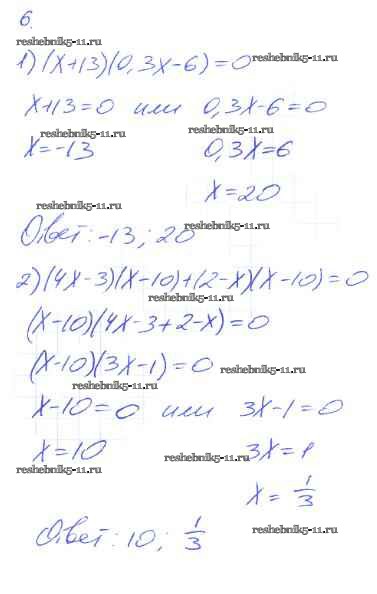 6.
reshebnik5-11.ru
reshebnik5-11.ru
1) (x+13)(0,3x-6)=0
x+13=0 или 0,3x-6=0
reshebnik5-11.ru
reshebnik5-11.ru
x=-13 0,3x=6
x=20
reshebnik5-11.ru
Ответ: -13; 20
reshebnik5-11.ru
2) (4x-3)(x-10)+(2-x)(x-10)=0
reshebnik5-11.ru
(x-10)(4x-3+2-x)=0
(x-10)(3x-1)=0
reshebnik5-11.ru
reshebnik5-11.ru
x-10=0 или 3x-1=0
x=10 3x=1
reshebnik5-11.ru
reshebnik5-11.ru
x=1/3
Ответ: 10; 1/3
reshebnik5-11.ru